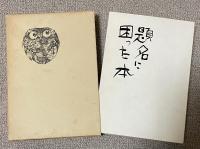 題名に
困った本